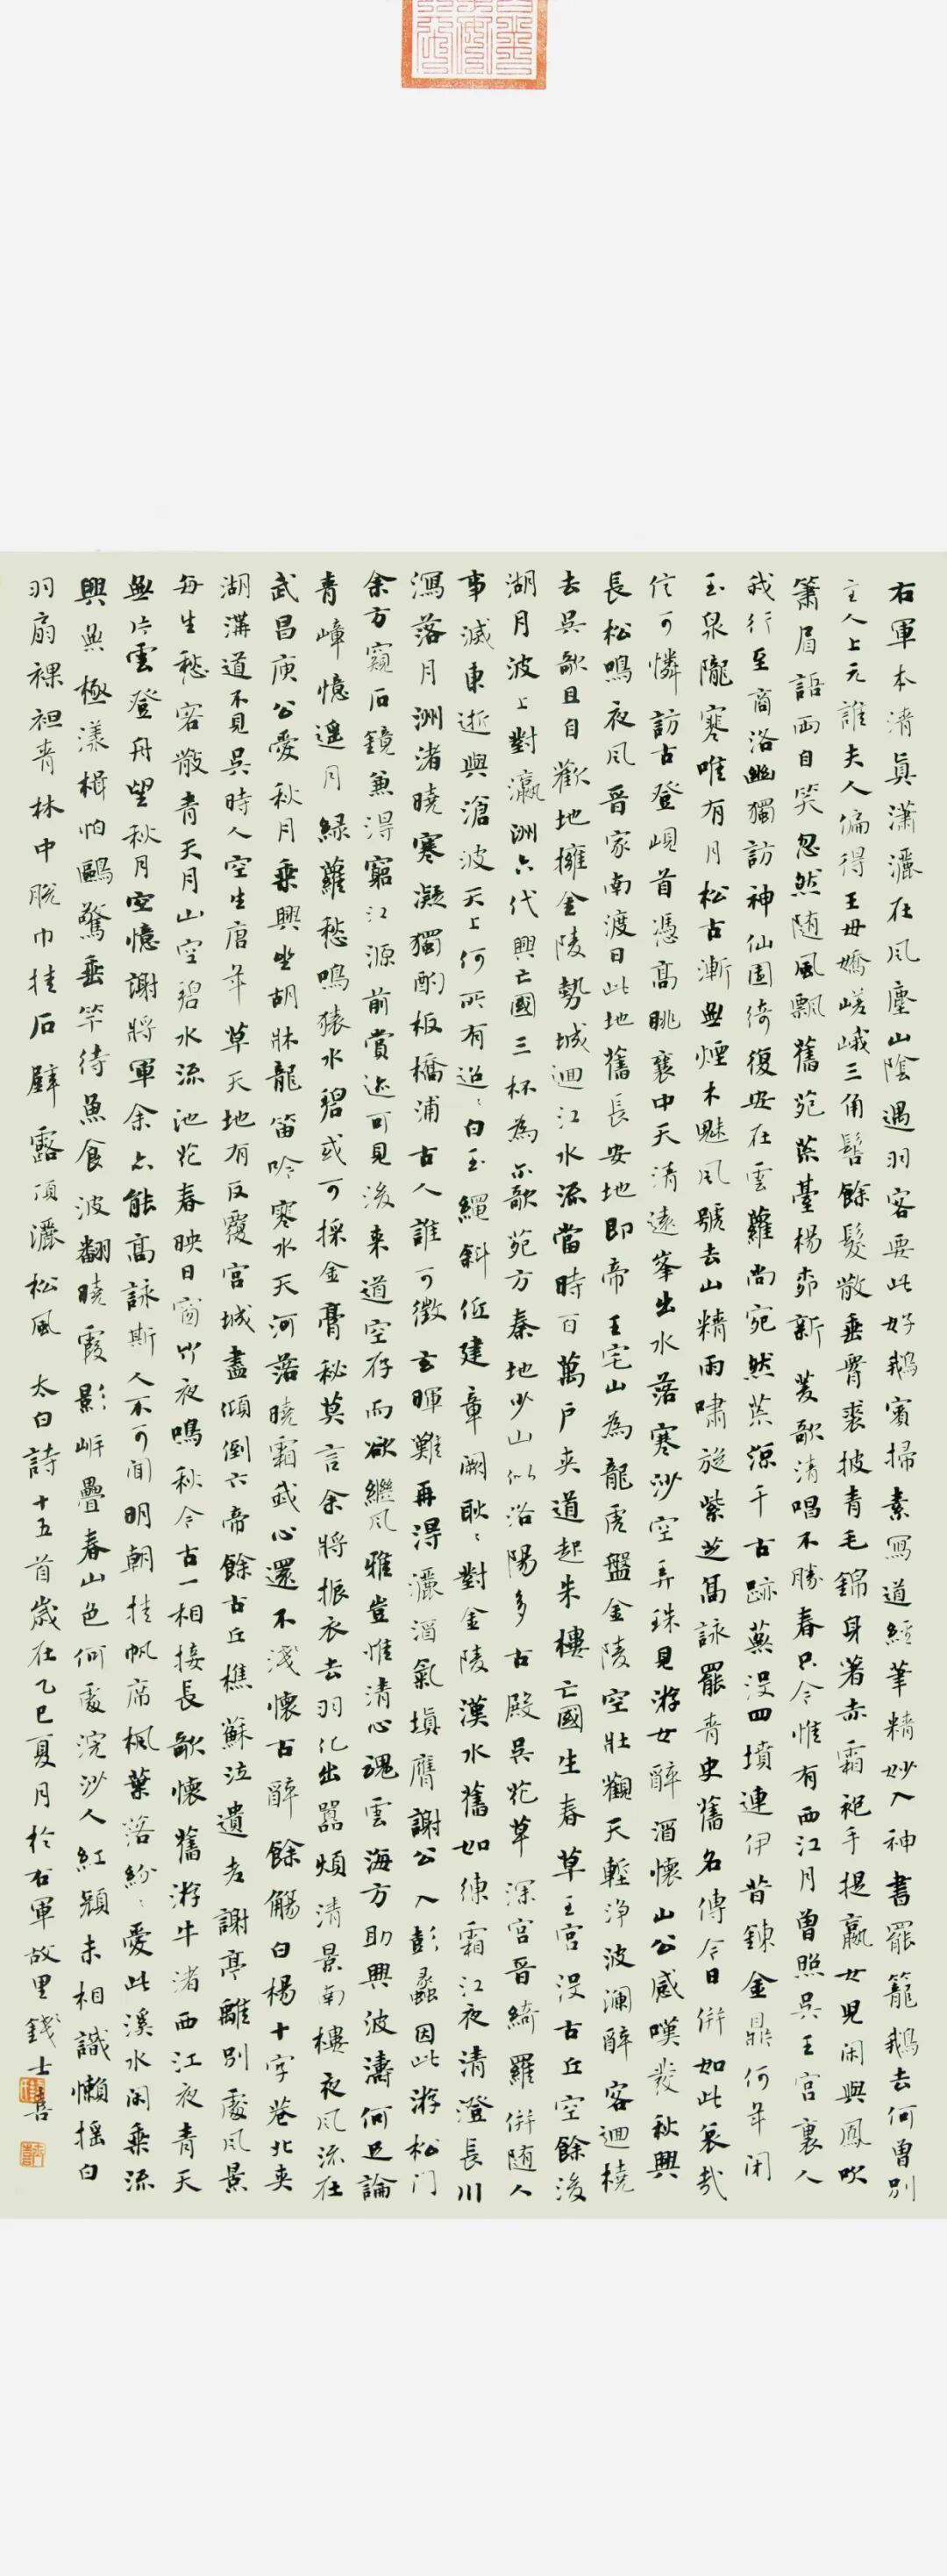 右軍本清真瀟灑在風塵山陰遇羽客要此好鵝賓掃素寫道經筆精妙入神書罷籠鵝去何曾別
主人上元誰夫人偏得王母嬌嵯峨三角髻餘髮散垂胷裘披青毛錦身著赤霜袍手提嬴女兒閑與鳳吹
簫眉語兩自笑忽然随風飄舊苑荒臺楊柳新菱歌清唱不勝春只今惟有西江月曾照吳王宮裏人
我行至商洛幽獨訪神仙園綺復安在雲蘿尚宛然荒涼千古跡蕪没四墳連伊昔鍊金鼎何年閉
玉泉隴寒唯有月松古漸無煙木魅風號去山精雨嘯旋紫芝高詠罷青史舊名傳今日併如此哀哉
信可憐訪古登峴首憑高眺襄中天清遠峯出水落寒沙空弄珠見游女醉酒懷山公感嘆發秋興
長松鳴夜風晋家南渡日此地舊長安地即帝王宅山為龍虎盤金陵空壯觀天塹淨波瀾醉客迴橈
去吳歌且自歡地擁金陵勢城迴江水流當時百萬户夾道起朱樓亡國生春草王宮没古丘空餘後
湖月波上對瀛洲六代興亡國三杯為尔歌苑方秦地少山似洛陽多古殿吳花草深宮晋綺羅併随人
事滅東逝與滄波天上何所有迢〻白玉繩斜低建章闕耿〻對金陵漢水舊如練霜江夜清澄長川
瀉落月洲渚曉寒凝獨酌板橋浦古人誰可徵玄暉難再得灑酒氣填膺謝公入彭蠡因此游松门
余方窺石鏡兼得窮江源前賞迹可見後来道空存而欲繼風雅豈惟清心魂雲海方助興波濤何足論
青嶂憶遥月緑蘿愁鳴猿水碧或可採金膏秘莫言余將振衣去羽化出囂煩清景南樓夜風流在
武昌庾公愛秋月乗興坐胡牀龍笛吟寒水天河落曉霜我心還不淺懷古醉餘觴白楊十字巷北夹
湖溝道不見吳時人空生唐年草天地有反覆宮城盡傾倒六帝餘古丘樵蘇泣遺老謝亭離別處風景
每生愁客散青天月山空碧水流池花春映日窗竹夜鳴秋今古一相接長歌懷舊游牛渚西江夜青天
無片雲登舟望秋月空憶謝將軍余亦能高詠斯人不可聞明朝挂帆席楓葉落紛〻愛此溪水閑乗流
興無極漾楫怕鷗驚垂竿待魚食波翻曉霞影岸疊春山色何處浣沙人紅顔未相識懶摇白
羽扇裸袒青林中脱巾挂石壁露頂灑松風　太白詩十五首歲在乙巳夏月於右軍故里錢士喜